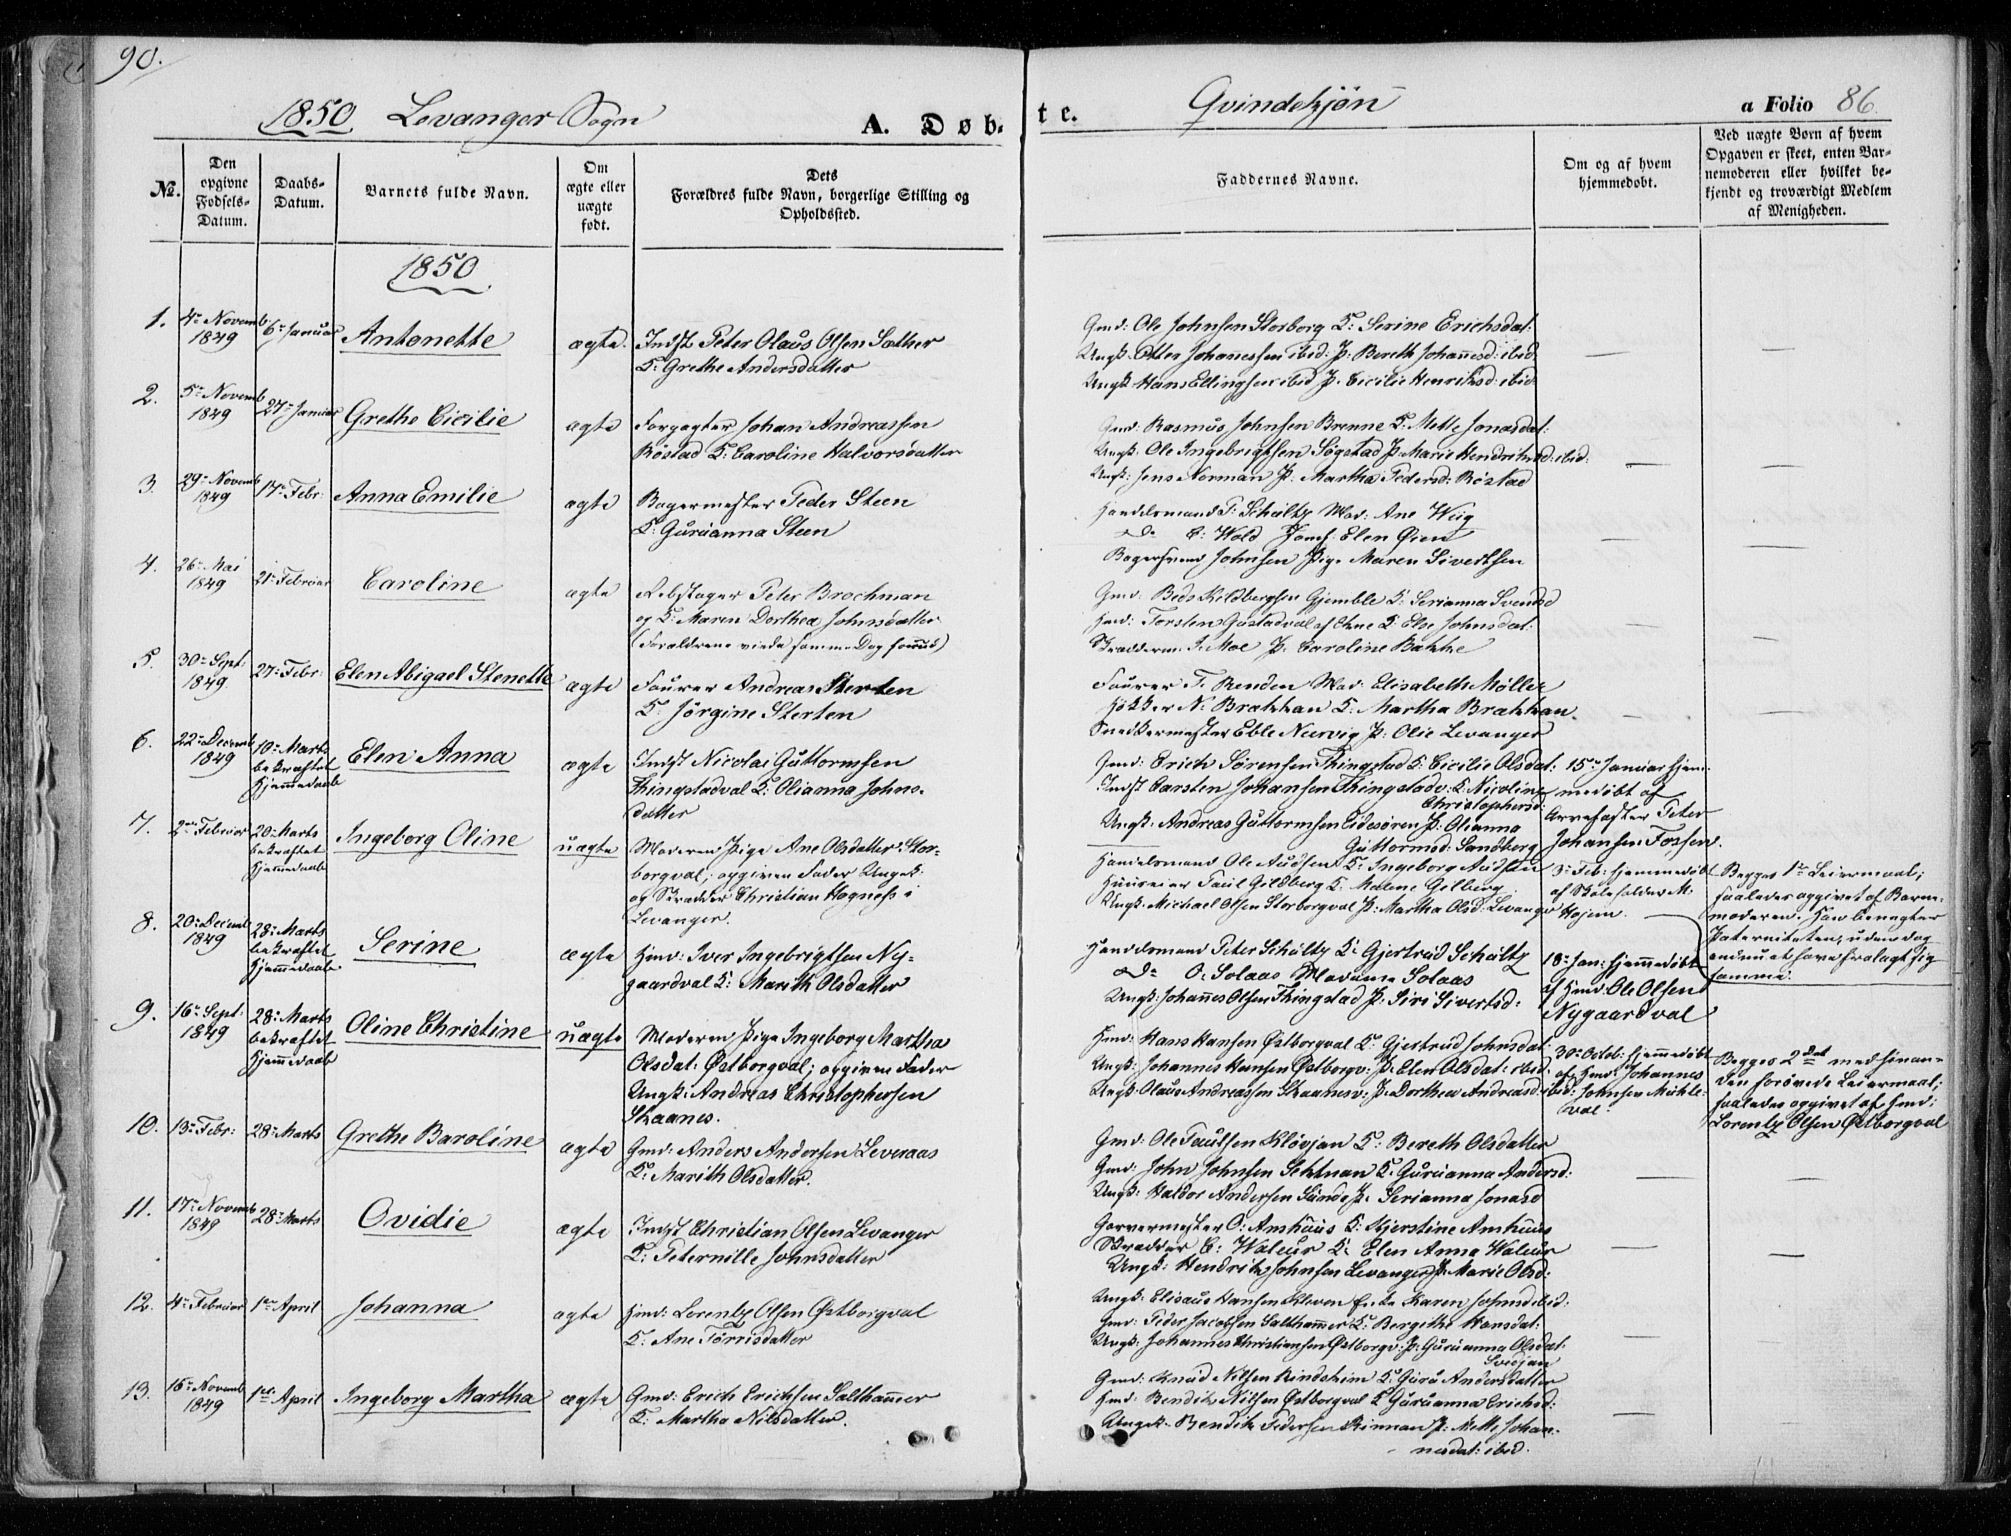 90.
1850 Levanger Sogn
A. Døb-
te.
Qvindekjøn
a Folio 86.
No.
Den opgivne Fødsels-Datum.
Daabs-Datum.
Barnets fulde Navn.
Om ægte eller uægte født.
Dets Forældres fulde Navn, borgerlige Stilling og Opholdssted.
Faddernes Navne.
Om og af hvem hjemmedøbt.
Ved uægte Børn af hvem Opgaven er skeet, enten Barnemoderen eller hvilket bekjendt og troværdigt Medlem af Menigheden.
1850
1. 4de Novemb: 1849 6te Januar Antonette ægte. Indst Peter Olaus Olsen Sæther
K: Grethe Andersdatter
Gmd: Ole Johnsen Storborg K: Serine Erichsdat:
Ungk: Petter Johannessen ibid: P: Bereth Johannesd: ibid
Ungk: Hans Ellingsen ibid P: Cicilie Henriksd: ibid
2. 5te Novemb 1849 27de Januar Grethe Cicilie ægte Forpagter Johan Andreassen
Røstad K: Caroline Halvorsdatter
Gmd: Rasmus Johnsen Brenne K: Mette Jonasdat:
Ungk: Ole Ingebrigtsen Søgstad P: Marie Hendriksd: ibid:
Ungk: Jens Norman P: Martha Pedersd: Røstad
3. 29de Novemb 1849 17de Febr: Anna Emilie ægte Bagermester Peder Steen
K: Guruanna Steen
Handelsmand P: Schultz Mad: Ane Wiig
Do E: Wold Jomf: Elen Øien
Bagersvend Johnsen Pige Maren Sivertsen
4. 26de Mai 1849 21de Februar Caroline ægte Rebslager Peter Brochman
og K: Maren Dorthea Johnsdatter
(Forældrene viede samme Dag forud)
Gmd: Beds Kildbergsen Gjemble K: Serianna Svendsd
Hmd: Torsten Gustadval af Ekne K: Else Johnsdat:
Skrædderm: J. Moe P: Caroline Bakke
5. 30te Sept: 1849. 27de Febr: Elen Abigael Stenette ægte Faurer Andreas Sterten
K: Jørgine Sterten
Faurer F. Renden Mad: Elisabeth Møller
Høkker N. Brakhan K: Martha Brakhan.
Snedkermester Eble Nervig P: Olie Levanger
6. 22de Decemb 1849 10de Marts bekræftet Hjemmedaab Elen Anna ægte Indst Nicolai Guttormsen
Thingstadval K: Olianna Johns-
datter
Gmd: Erich Sørensen Thingstad K: Cicilie Olsdat:
Indst Carsten Johansen Thingstadv: K: Nicoline
Christophersd:
Ungk: Andreas Guttormsen Eidesøren P: Olianna
Guttormsd: Sandberg
15de Januar hjem-
medøbt af
Arvefæster Peter
Johansen Fossen.
7. 2den Februar 20de Marts bekræftet Hjemmedaab Ingeborg Oline uægte Moderen Pige Ane Olsdatter Stor-
borgval; opgiven Fader Ungk:
og Skrædder Christian Hogness i
Levanger.
Handelsmand Ole Audsen K: Ingeborg Audsen
Huuseier Paul Gildberg K: Malene Gilberg
Ungk: Michael Olsen Storborgval P: Martha Olsd: Levanger
3die Feb: hjemmedøbt
af Skoleholder M:
Hojem.
Begges 1ste Leiermaal;
saaledes opgivet af Barne-
moderen. Han benegter
Paterniteten, uden dog
endnu at have fralagt sig
samme.
8. 20de Decemb 1849 28de Marts bekræftet Hjemmedaab Serine ægte Hmd: Iver Ingebrigtsen Ny-
gaardval K: Marith Olsdatter
Handelsmand Peter Schultz K: Gjertrud Schultz
Do O. Solaas Madame Solaas
Ungk: Johannes Olsen Thingstad P: Siri Sivertsd:
18de Jan: hjemmedøbt
af Hmd: Ole Olsen
Nygaardval
9. 16de Sept: 1849 28de Marts bekræftet Hjemmedaab Oline Christine uægte Moderen Pige Ingeborg Martha
Olsdat: Østborgval; opgiven Fader
Ungk: Andreas Christophersen
Skaanes.
Hmd: Hans Hansen Østborgval K: Gjertrud Johnsdat:
Ungk: Johannes Hansen Østborgv: P: Elen Olsdat: ibid.
Ungk: Olaus Andreassen Skaanesv: P: Dorthea Andreasd: ibid:
30te Octob: hjemmedøbt
af Hmd: Johannes
Johnsen Mukle-
val.
Begges 2det med hinan-
den forøvede Leiermaal;
saaledes opgivet af Hmd:
Lorentz Olsen Østborgval
10. 13de Febr: 28de Marts Grethe Baroline ægte Gmd: Anders Andersen Leveraas
K: Marith Olsdatter.
Gmd: Ole Paulsen Kløvjan K: Bereth Olsdatter
Gmd: John Johnsen Sehtnan K: Guruanna Andersd:
Ungk: Haldor Andersen Sunde P: Serianna Jonasd
11. 17de Novemb 1849 28de Marts Ovidie ægte Indst Christian Olsen Levanger
K: Peternille Johnsdatter
Garvermester O: Amhuus K: Kjerstine Amhuus
Skrædder C: Waleur K: Elen Anna Waleur
Ungk: Hendrik Johnsen Levanger P: Marie Olsd:
12. 4de Februar 1ste April Johanna ægte Hmd: Lorentz Olsen Østborgval
K: Ane Tørrisdatter
Ungk: Elisæus Hansen Kleven Enke Karen Johnsd ibid:
Gmd: Peder Jacobsen Salthammer K: Bergithe Hansdat:
Ungk: Johannes Christiansen Østborgv: P: Guruanna Olsdat:
Svedjan
13. 16de Novemb 1849 1ste April Ingeborg Martha ægte Gmd: Erich Erichsen Salthammer
K: Martha Nilsdatter.
Gmd: Knud Nilsen Rindsheim K: Guru Andersdatter
Hmd: Bendik Nilsen Østborgval K: Guruanna Erichsd:
Ungk: Bendik Pedersen Rinnan P: Mette Johan-
nesdat: ibid.